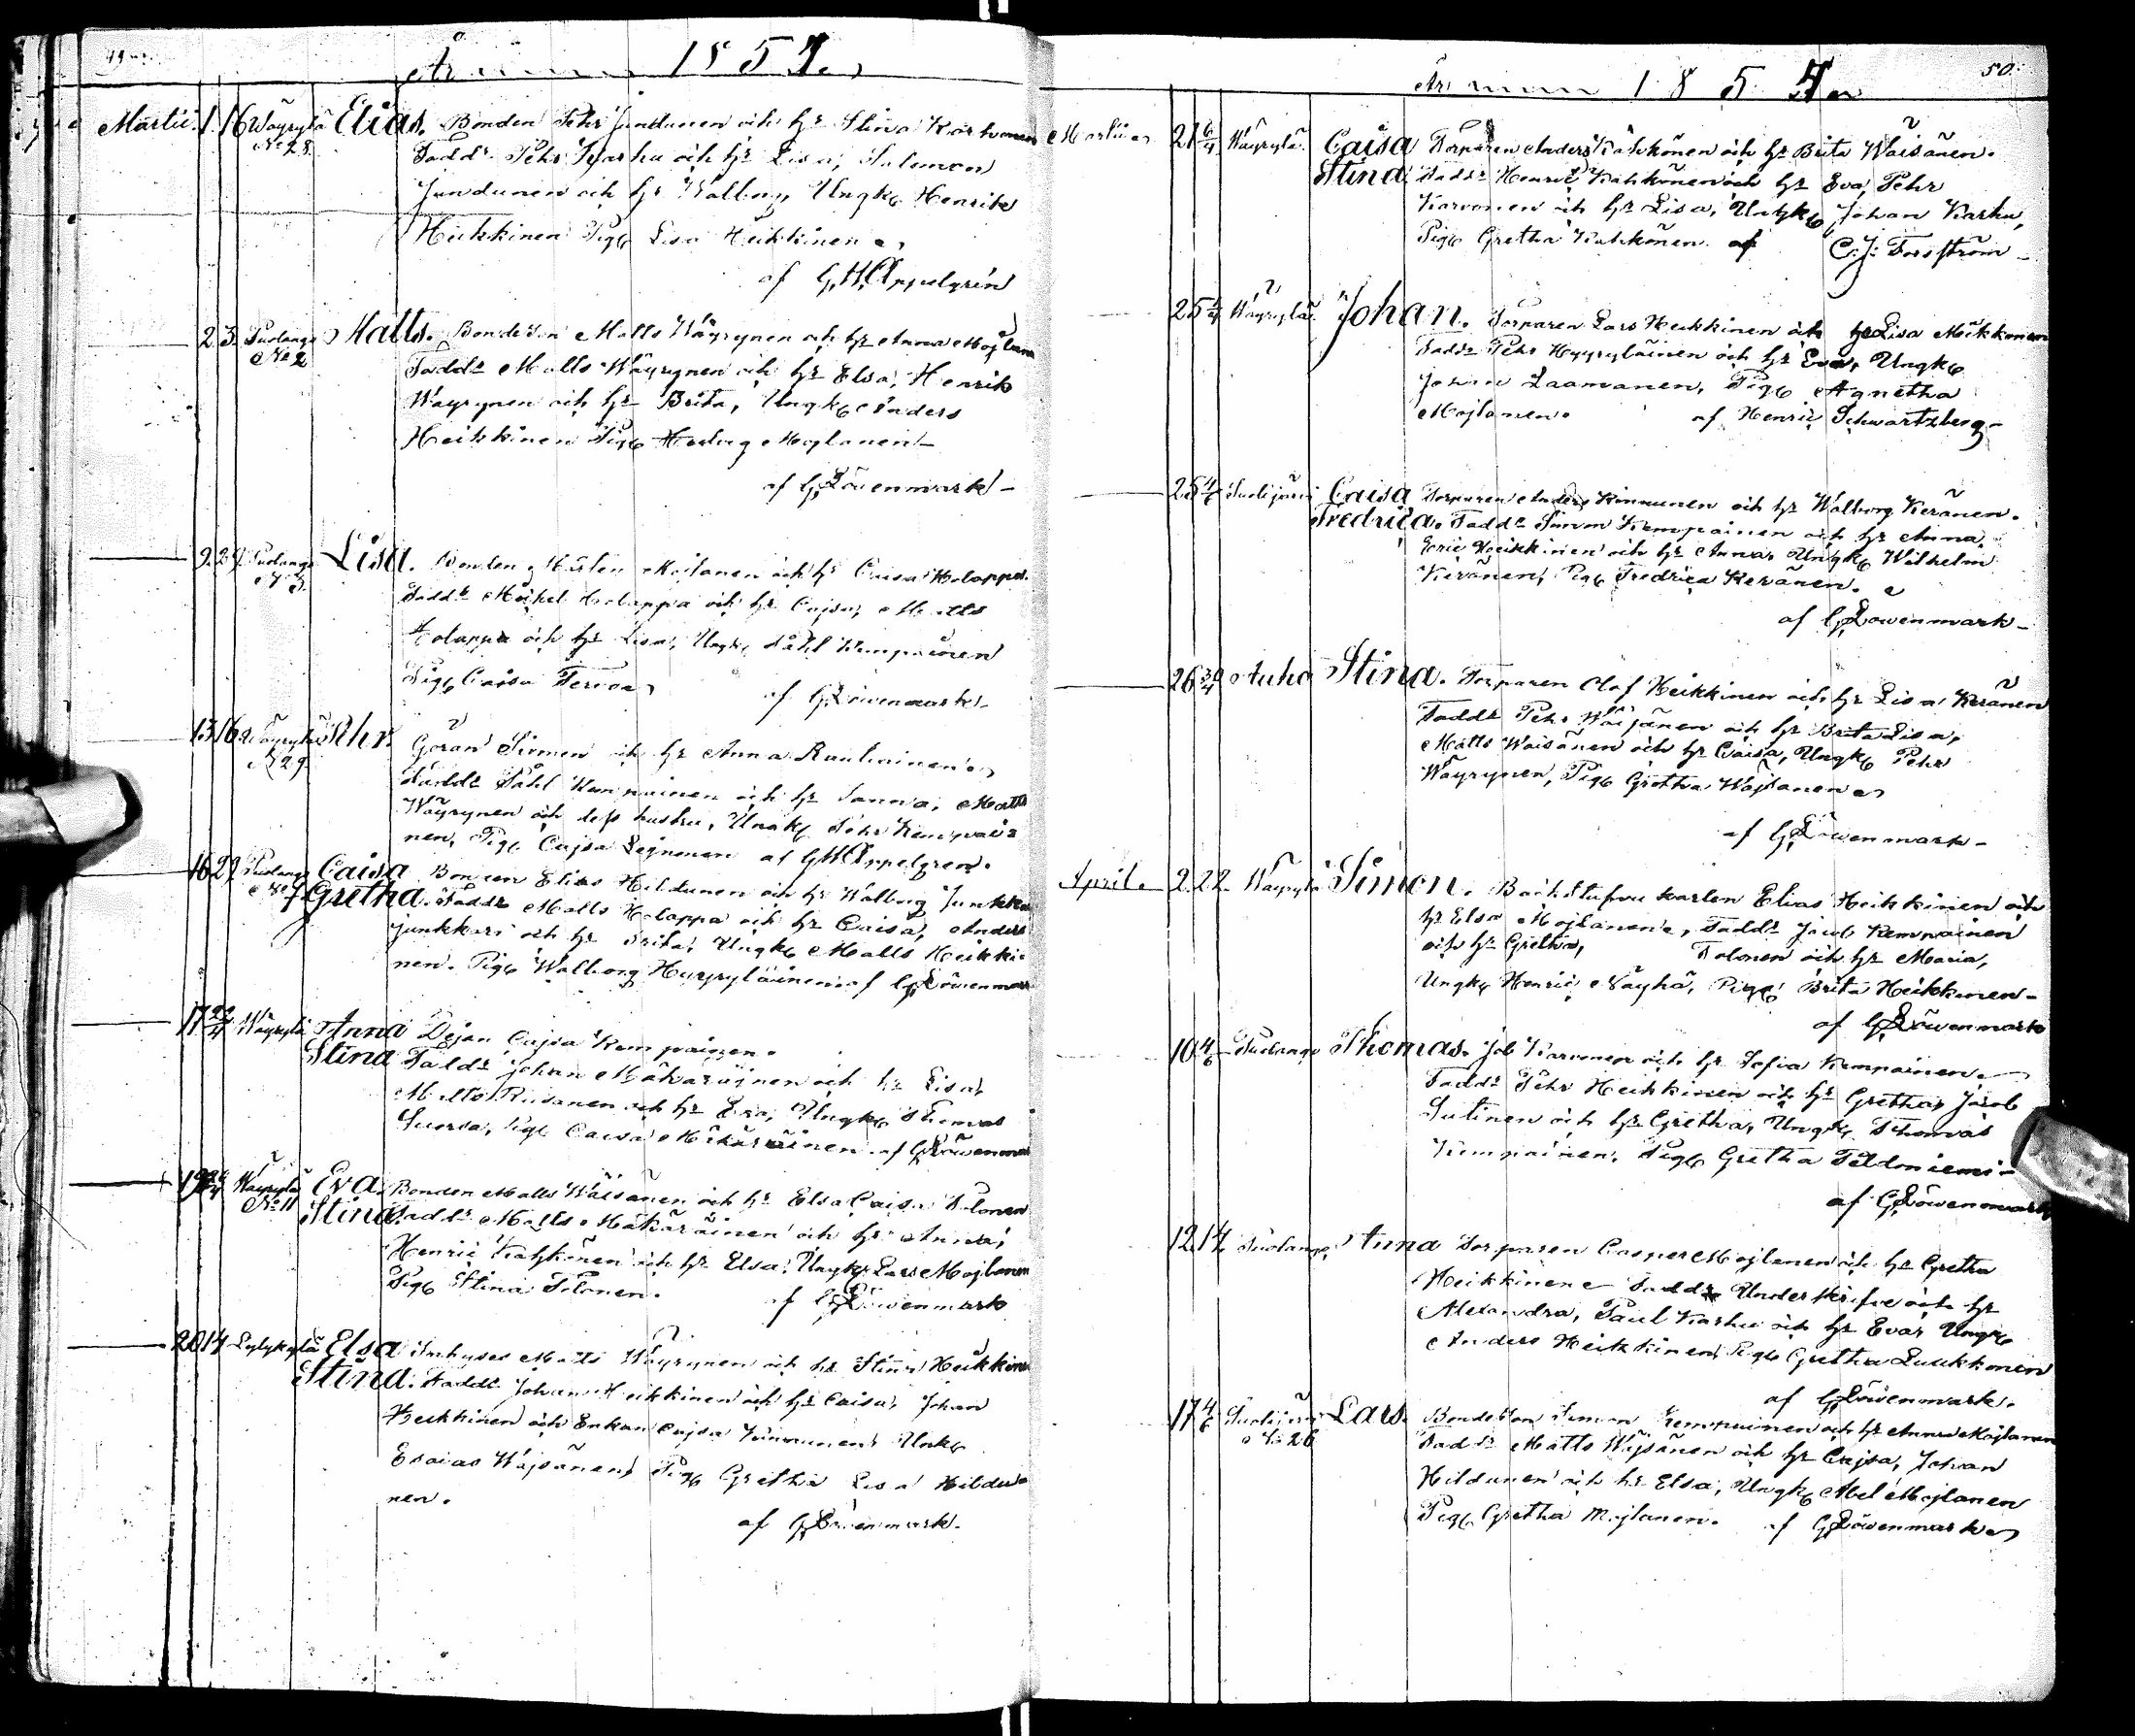 År 1857.
Martii. 1. 16 Wäyrylä Elias. Bonden Pehr Jundunen och hr Stina Karhonen
No 28. Fadd: Pehr Karhu och hr Lisa, Salomon
Jundunen och hr Walborg, Ungk. Henrik
Heikkinen Pig. Lisa Heikkinen
af G.H. Appelgrén
2 3. Puolango Matts. Bondeson Matts Wäyrynen och hr Anna Mojlanen
No 2 Fadd: Matts Wäyrynen och hr Elsa, Henrik
Wäyrynen och hr Brita, Ungk. Anders
Heikkinen Pig. Hedvig Mojlanen
af G. Löwenmark
9. 29. Puolango Lisa. Bonden Mojlanen och hr Caisa Holappa.
No 5. Fadd: Michel Holappa och hr Cajsa, Matts
Holappa och hr Lisa, Ungk. Påhl Kempainen
Pig. Caisa Tervo
af G. Löwenmark
13. 16. Wäyrylä Pehr. Göran Sirmen och hr Anna Rautiainen
No 29 Fadd: Påhl Kempainen och hr Sanna, Matts
Wäyrynen och dess hustru, Ungk. Pehr Kempai-
nen, Pig. Cajsa Leinonen af G.H. Appelgren.
16 29 Puolango Caisa Bonden Elias Hildunen och hr Walborg Junkka
No 7 Gretha. Fadd: Matts Holappa och hr Caisa, Anders
Junkkari och hr Brita, Ungk. Matts Heikki-
nen. Pig. Walborg Hyyryläinen af G. Löwenmark
17 Wäyrylä Anna Dejan Cajsa Kempainen.
Stina Fadd: Johan Mäkäräinen och hr Lisa,
Matts Riisanen och hr Eva, Ungk. Thomas
Suorsa, Pig. Caisa Mäkäräinen af G. Löwenmark
19 Wäyrylä Eva. Bonden Matts Wäisänen och hr Elsa Caisa Tolonen
No 11 Stina. Fadd: Matts Mäkäräinen och hr Anna,
Henric Kähkönen och hr Elsa, Ungk. Lars Mojlanen
Pig. Stina Tolonen.
af G. Löwenmark
20 14 Lylykylä Elsa Inhyses Matts Wäyrynen och hr Stina Heikkinen
Stina. Fadd: Johan Heikkinen och hr Caisa, Johan
Heikkinen och Enkan Cajsa Kinnunen, Ungk.
Esaias Wäjsänen, Pig. Gretha Lisa Hildu-
nen.
af G. Löwenmark.
50.
År 1857
Martii 21 6/4 Wäyrylä. Caisa Torparen Anders Kähkönen och hr Brita Wäisänen.
Stina Fadd: Henric Kähkönen och hr Eva, Pehr
Karvonen och hr Lisa, Ungk. Johan Karhu,
Pig. Gretha Kähkönen. af C.J. Forsström
25 Wäyrylä. Johan. Torparen Lars Heikkinen och hr Lisa Mikkonen
Fadd: Pehr Hyyryläinen och hr Eva, Ungk.
Johan Laamanen, Pig. Agnetha
Mojlanen. af Henric Schwartzberg
25 Suolijärvi Caisa Torparen Anders Kinnunen och hr Walborg Keränen.
Fredrica. Fadd: Simon Kempainen och hr Anna,
Eric Heikkinen och hr Anna, Ungk. Wilhelm
Keränen, Pig. Fredrica Keränen.
af G. Löwenmark
26 Auho Stina. Torparen Olof Heikkinen och hr Lisa Keränen
Fadd: Pehr Wäjsänen och hr Brita Lisa,
Matts Waisänen och hr Caisa, Ungk. Pehr
Wäyrynen, Pig. Gretha Wäjsänen
af G. Löwenmark
April. 2. 22. Wäyrylä Simon. Backstufvu karlen Elias Heikkinen och
hr Elsa Mojlanen, Fadd: Jacob Kempainen
och hr Gretha, Tolonen och hr Maria,
Ungk. Henric Näyhä, Pig. Brita Heikkinen
af G. Löwenmark
10 4/6 Puolango Thomas. Job Karvonen och hr Sofia Kempainen.
Fadd: Pehr Heikkinen och hr Gretha, Jacob
Sutinen och hr Gretha, Ungk. Thomas
Kempainen, Pig. Gretha Peldoniemi
af G. Löwenmark
12 Puolango Anna Torparen Casper Mojlanen och hr Gretha
Heikkinen Fadd: Underskrifve och hr
Alexandra, Paul Karhu och hr Eva, Ungk.
Anders Heikkinen, Pig. Gretha Luukkonen
af G. Löwenmark.
17 4/6 Suolijärvi Lars. Bondeson Simon Kempainen och hr Anna Mojlanen
No 26 Fadd: Matts Wäjsänen och hr Cajsa, Johan
Hildunen och hr Elsa, Ungk. Abel Mojlanen
Pig. Gretha Mojlanen. af G. Löwenmark